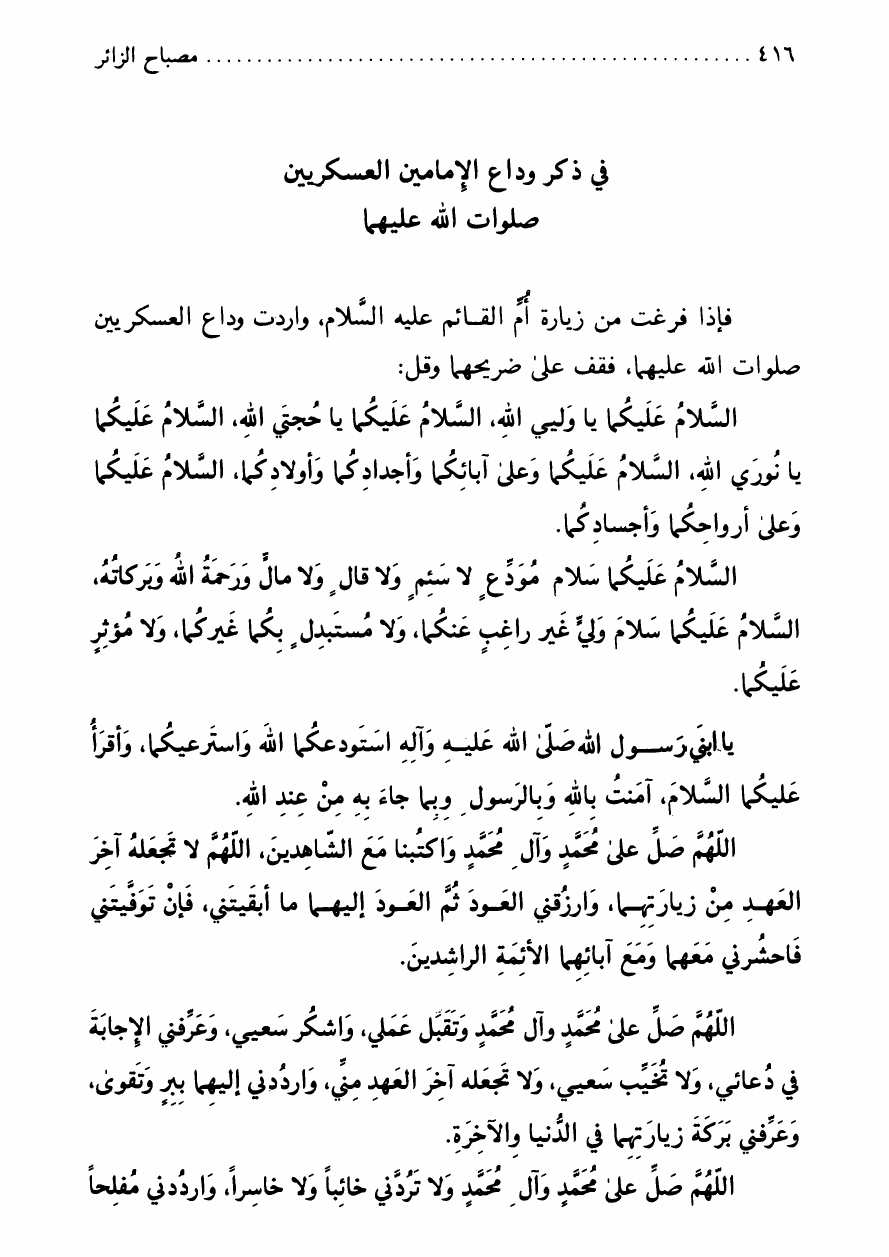 ٤١٦ ........................................................ مصباح الزائر
في ذكر وداع الإمامين العسكريين
صلوات الله عليهما
فإذا فرغت من زيارة أُمِّ القـائم عليه السَّلام، واردت وداع العسكريين
صلوات الله عليهما، فقف علىٰ ضريحهما وقل:
السَّلامُ عَلَيكُما يا وَليي اللهِ، السَّلامُ عَلَيكُما يا حُجتَيِ اللهِ، السَّلامُ عَلَيكُما
يا نُورَي اللهِ، السَّلامُ عَلَيكُما وَعلىٰ آبائِكُما وأجدادِكُما وَأولادِكُما، السَّلامُ عَلَيكُما
وَعلىٰ أرواحِكُما وَأجسادِكُما.
السَّلامُ عَلَيكُما سَلام مُوَدِّعٍ لا سَئِمٍ وَلا قالٍ وَلا مالٍّ وَرَحمَةُ اللهُ وَبَرَكاتُهُ،
السَّلامُ عَلَيكُما سَلامَ وَليٍّ غَير راغِبٍ عَنكُما، وَلا مُستَبدِلٍ بِكُما غَيرَكُما، وَلا مُؤثِرٍ
عَلَيكُما.
يا ابنَي رَســول الله صَلّىٰ الله عَليـهِ وَآلِهِ اسَتَودعكُما اللهَ وَاستَرعيكُما، وَأقرَأُ
عَليكُما السَّلامَ، آمَنتُ بِاللهِ وَبِالرَسولِ وَبِما جاءَ بِهِ مِنْ عِندِ اللهِ.
اللّهُمَّ صَلِّ علىٰ مُحَمَّدٍ وَآلِ مُحَمَّدٍ وَاكتُبنا مَعَ الشّاهدينَ، اللّهُمَّ لا تَجَعَلهُ آخِرَ
العَهـدِ مِنْ زيارَتِهِـما، وَارزُقني العَـودَ ثُمَّ العَـودَ إليهِـما ما أبقَيتَني، فَإنْ تَوَفَّيتَني
فَاحشُرني مَعَهما وَمَعَ آبائِهِما الأئمَةِ الراشدينَ.
اللّهُمَّ صَلِّ علىٰ مُحَمَّدٍ وآل مُحَمَّدٍ وَتَقَبَّل عَمَلي، وَاشكُر سَعيي، وَعَرِّفني الإجابَةَ
في دُعائي، وَلا تُخَيِّب سَعيي، وَلا تَجَعَله آخِرَ العَهدِ مِنّي، وَاردُدني إليهِما بِبِرٍ وَتَقوىٰ،
وَعَرِّفني بَرَكَةَ زيارَتِهِما في الدُّنيا وِالآخِرَةِ.
اللّهُمَّ صَلِّ علىٰ مُحَمَّدٍ وَآلِ مُحَمَّدٍ وَلا تَرُدَّني خائِباً وَلا خاسِراً، وَاردُدني مُفلِحاً